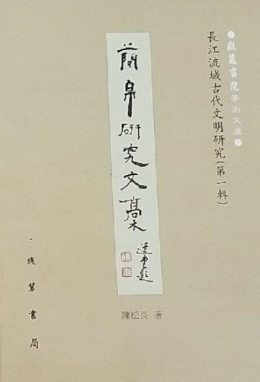 ●嶽麓書院學術文庫●
長江流域古代文明研究(第一輯)
簡帛研究文稾
陳松長 著
綫裝書局